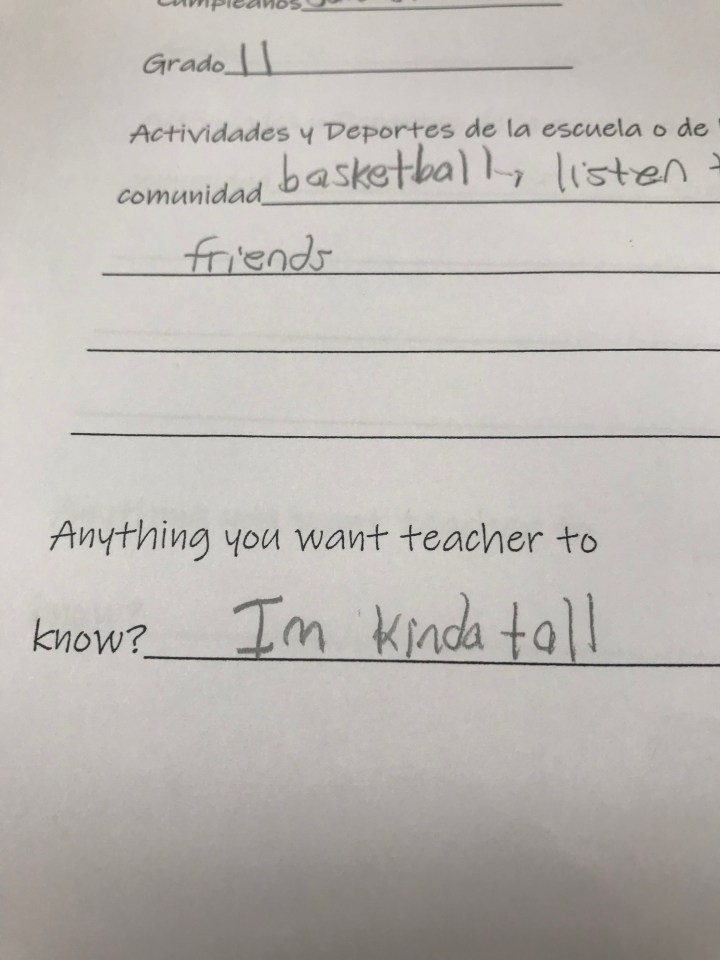 Cumpleaños
Grado 11
Actividades y Deportes de la escuela o de
comunidad basketball, listen
friends
Anything you want teacher to
know? Im kinda tall